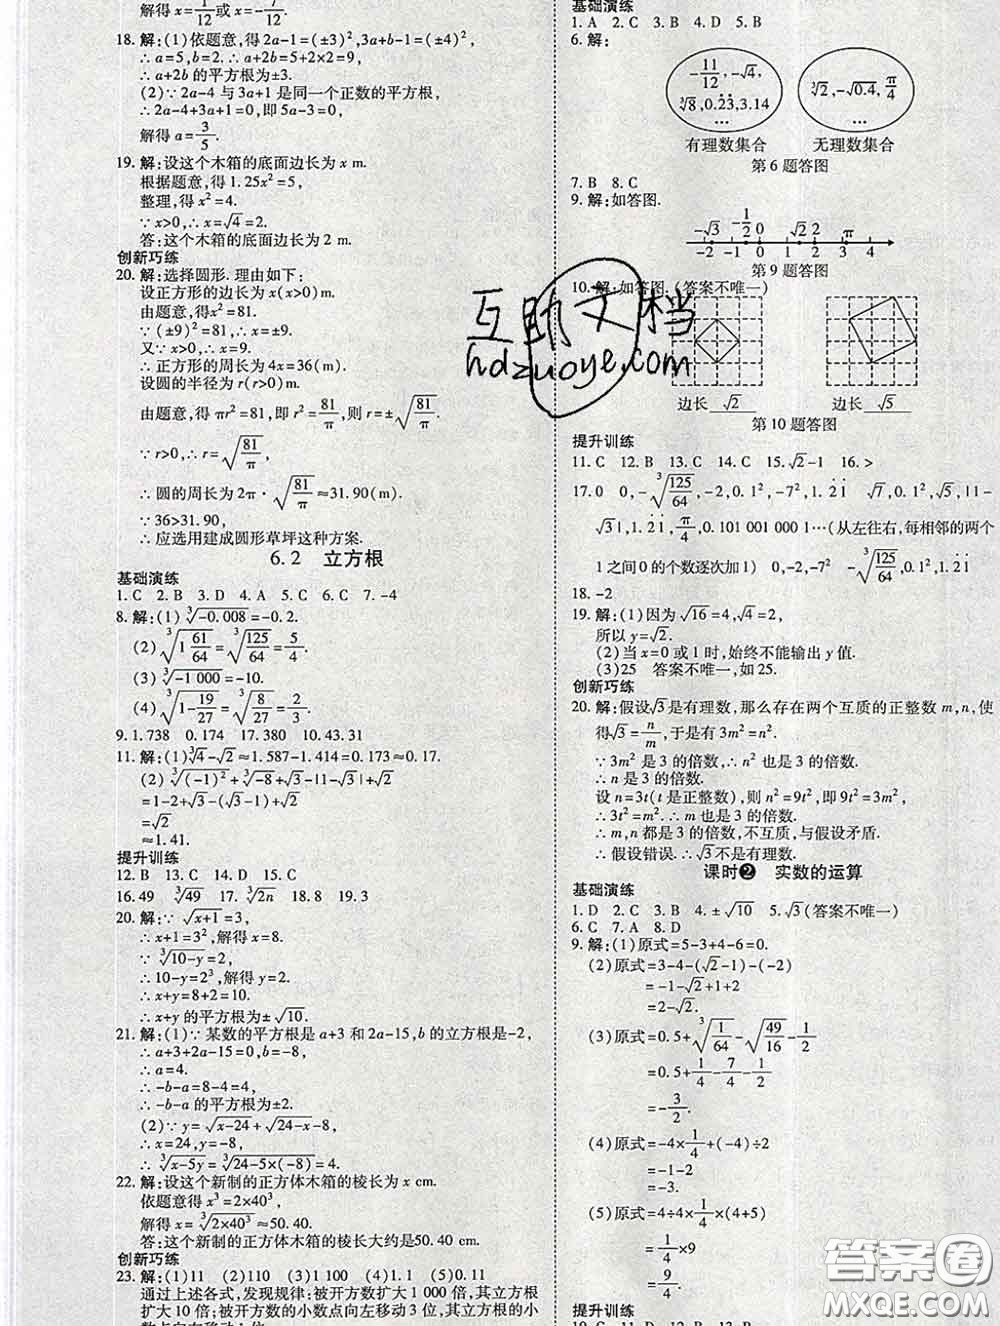 解得 x=1/12 或 x=-7/12.
18. 解:(1)依题意,得 2a-1=(±3)²,3a+b-1=(±4)²,
∴a=5,b=2.∴a+2b=5+2×2=9,
∴a+2b 的平方根为±3.
(2)∵2a-4 与 3a+1 是同一个正数的平方根,
∴2a-4+3a+1=0,即 5a-3=0,
解得 a=3/5.
19. 解:设这个木箱的底面边长为 x m.
根据题意,得 1.25x²=5,
整理,得 x²=4.
∵x>0,∴x=√4=2.
答:这个木箱的底面边长为 2 m.
创新巧练
20. 解:选择圆形.理由如下:
设正方形的边长为 x(x>0)m.
由题意,得 x²=81.
∵(±9)²=81,∴x=±9.
又∵x>0,∴x=9.
∴正方形的周长为 4x=36(m).
设圆的半径为 r(r>0)m.
由题意,得 πr²=81,即 r²=81/π,则 r=±√(81/π).
∵r>0,∴r=√(81/π),
∴圆的周长为 2π·√(81/π)≈31.90(m).
∵36>31.90,
∴应选用建成圆形草坪这种方案.
6.2 立方根
基础演练
1.C 2.B 3.D 4.A 5.C 6.C 7.-4
8. 解:(1)∛(-0.008)=-0.2.
(2)∛(1 61/64)=∛(125/64)=5/4.
(3)∛(-1 000)=-10.
(4)∛(1-19/27)=∛(8/27)=2/3.
9.1.738 0.174 17.380 10.43.31
11. 解:(1)∛4-√2≈1.587-1.414=0.173≈0.17.
(2)∛((-1)²)+∛(-8)+√3-|1-√3|+√2
=1-2+√3-(√3-1)+√2
=√2
≈1.41.
提升训练
12.B 13.C 14.D 15.C
16.49 ∛49 17.∛(2n) 18.8 19.3
20. 解:∵√(x+1)=3,
∴x+1=3²,解得 x=8.
∵∛(10-y)=2,
∴10-y=2³,解得 y=2.
∴x+y=8+2=10.
∴x+y 的平方根为±√10.
21. 解:(1)∵某数的平方根是 a+3 和 2a-15,b 的立方根是-2,
∴a+3+2a-15=0,b=-8,
∴a=4.
∴-b-a=8-4=4,
∴-b-a 的平方根为±2.
(2)∵y=√(x-24)+√(24-x)-8,
∴x=24,y=-8,
∴∛(x-5y)=∛(24-5×(-8))=4.
22. 解:设这个新制的正方体木箱的棱长为 x cm.
依题意得 x³=2×40³,
解得 x=∛(2×40³)≈50.40.
答:这个新制的正方体木箱的棱长大约是50.40 cm.
创新巧练
23. 解:(1)11 (2)110 (3)1 100 (4)1.1 (5)0.11
通过上述各式,发现规律:被开方数扩大 1 000 倍,其立方根
扩大 10 倍;被开方数的小数点向左移动 3 位,其立方根的小
数点向左移动 1 位.
基础演练
1.A 2.C 3.B 4.D 5.B
6. 解:
-11/12,-√4, ∛2,-√0.4,π/4
∛8,0.2̇3̇,3.14
… …
有理数集合 无理数集合
第 6 题答图
7.B 8.C
9. 解:如答图.
-√3 -1/2 0 √2 2 π
-2 -1 0 1 2 3 4
第 9 题答图
10. 解:如答图.(答案不唯一)
边长 √2 边长 √5
第 10 题答图
提升训练
11.C 12.B 13.C 14.C 15.√2-1 16.>
17.0 0,-∛(125/64),-2,0.1²,-7²,1.2̇1̇ √7,0.1²,√5,|1-
√3|,1.2̇1̇,π/4,0.101 001 000 1…(从左往右,每相邻的两个
1 之间 0 的个数逐次加 1) 0,-2,-7² -∛(125/64),0.1²,1.2̇1̇
18.-2
19. 解:(1)因为 √16=4,√4=2,
所以 y=√2.
(2)当 x=0 或 1 时,始终不能输出 y 值.
(3)25 答案不唯一,如 25.
创新巧练
20. 解:假设√3是有理数,那么存在两个互质的正整数 m,n,使
得√3=n/m,于是有 3m²=n².
∵3m² 是 3 的倍数,∴n² 也是 3 的倍数.
∴n 是 3 的倍数.
设 n=3t(t 是正整数),则 n²=9t²,即 9t²=3m²,
∴3t²=m².∴m 也是 3 的倍数.
∴m,n 都是 3 的倍数,不互质,与假设矛盾.
∴假设错误.∴√3不是有理数.
课时❷ 实数的运算
基础演练
1.D 2.C 3.B 4.±√10 5.√3(答案不唯一)
6.C 7.A 8.D
9. 解:(1)原式=5-3+4-6=0.
(2)原式=3-4-(√2-1)-(-2)
=-1-√2+1+2
=2-√2.
(3)原式=0.5+∛(1/64)-√(49/16)-1/2
=0.5+1/4-7/4-1/2
=-3/2.
(4)原式=-4×1/4+(-4)÷2
=-1-2
=-3.
(5)原式=4÷4×1/4×(4+5)
=1/4×9
=9/4.
提升训练
互助文档
hdzuoye.com
答案圈
MXQE.COM